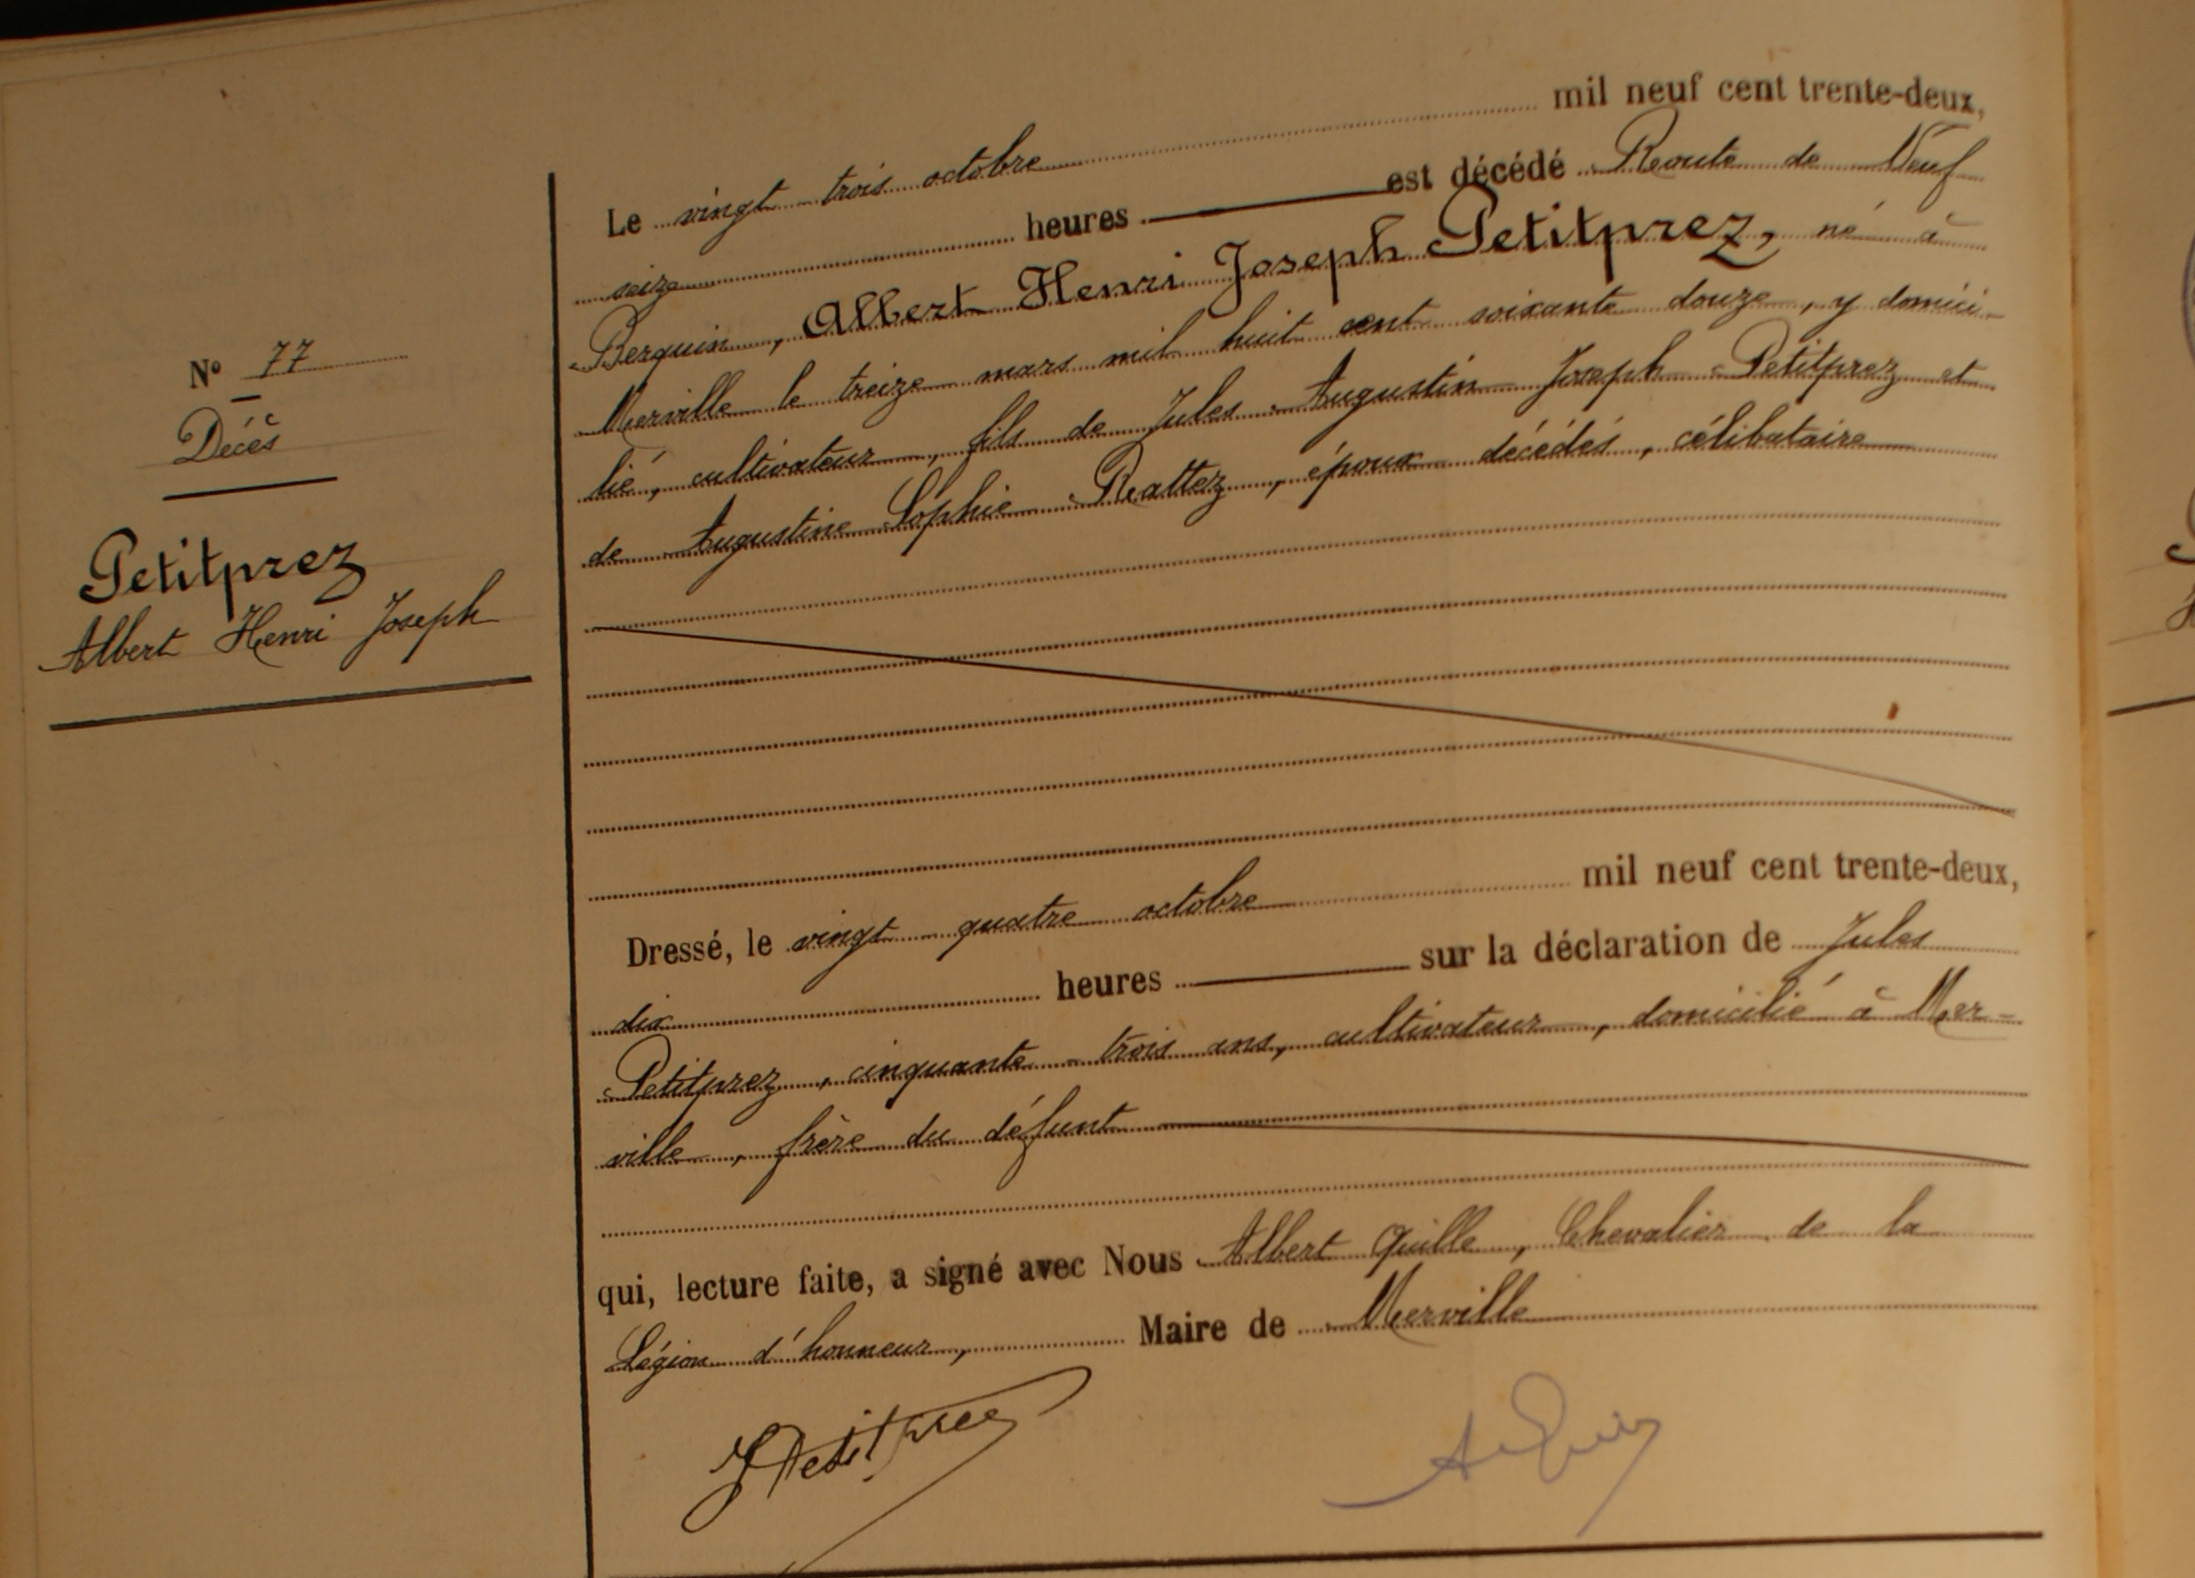 N° 77
Décès
Petitprez
Albert Henri Joseph
Le vingt trois octobre mil neuf cent trente-deux,
seize heures est décédé Route de Neuf
Berquin, Albert Henri Joseph Petitprez, né à
Merville le treize mars mil huit cent soixante douze, y domici-
lié, cultivateur, fils de Jules Augustin Joseph Petitprez et
de Augustine Sophie Rattez, époux décédés, célibataire
Dressé, le vingt quatre octobre mil neuf cent trente-deux,
dix heures sur la déclaration de Jules
Petitprez, cinquante-trois ans, cultivateur, domicilié à Mer-
ville, frère du défunt
qui, lecture faite, a signé avec Nous Albert Quille, Chevalier de la
Légion d'honneur, Maire de Merville
J Petitprez